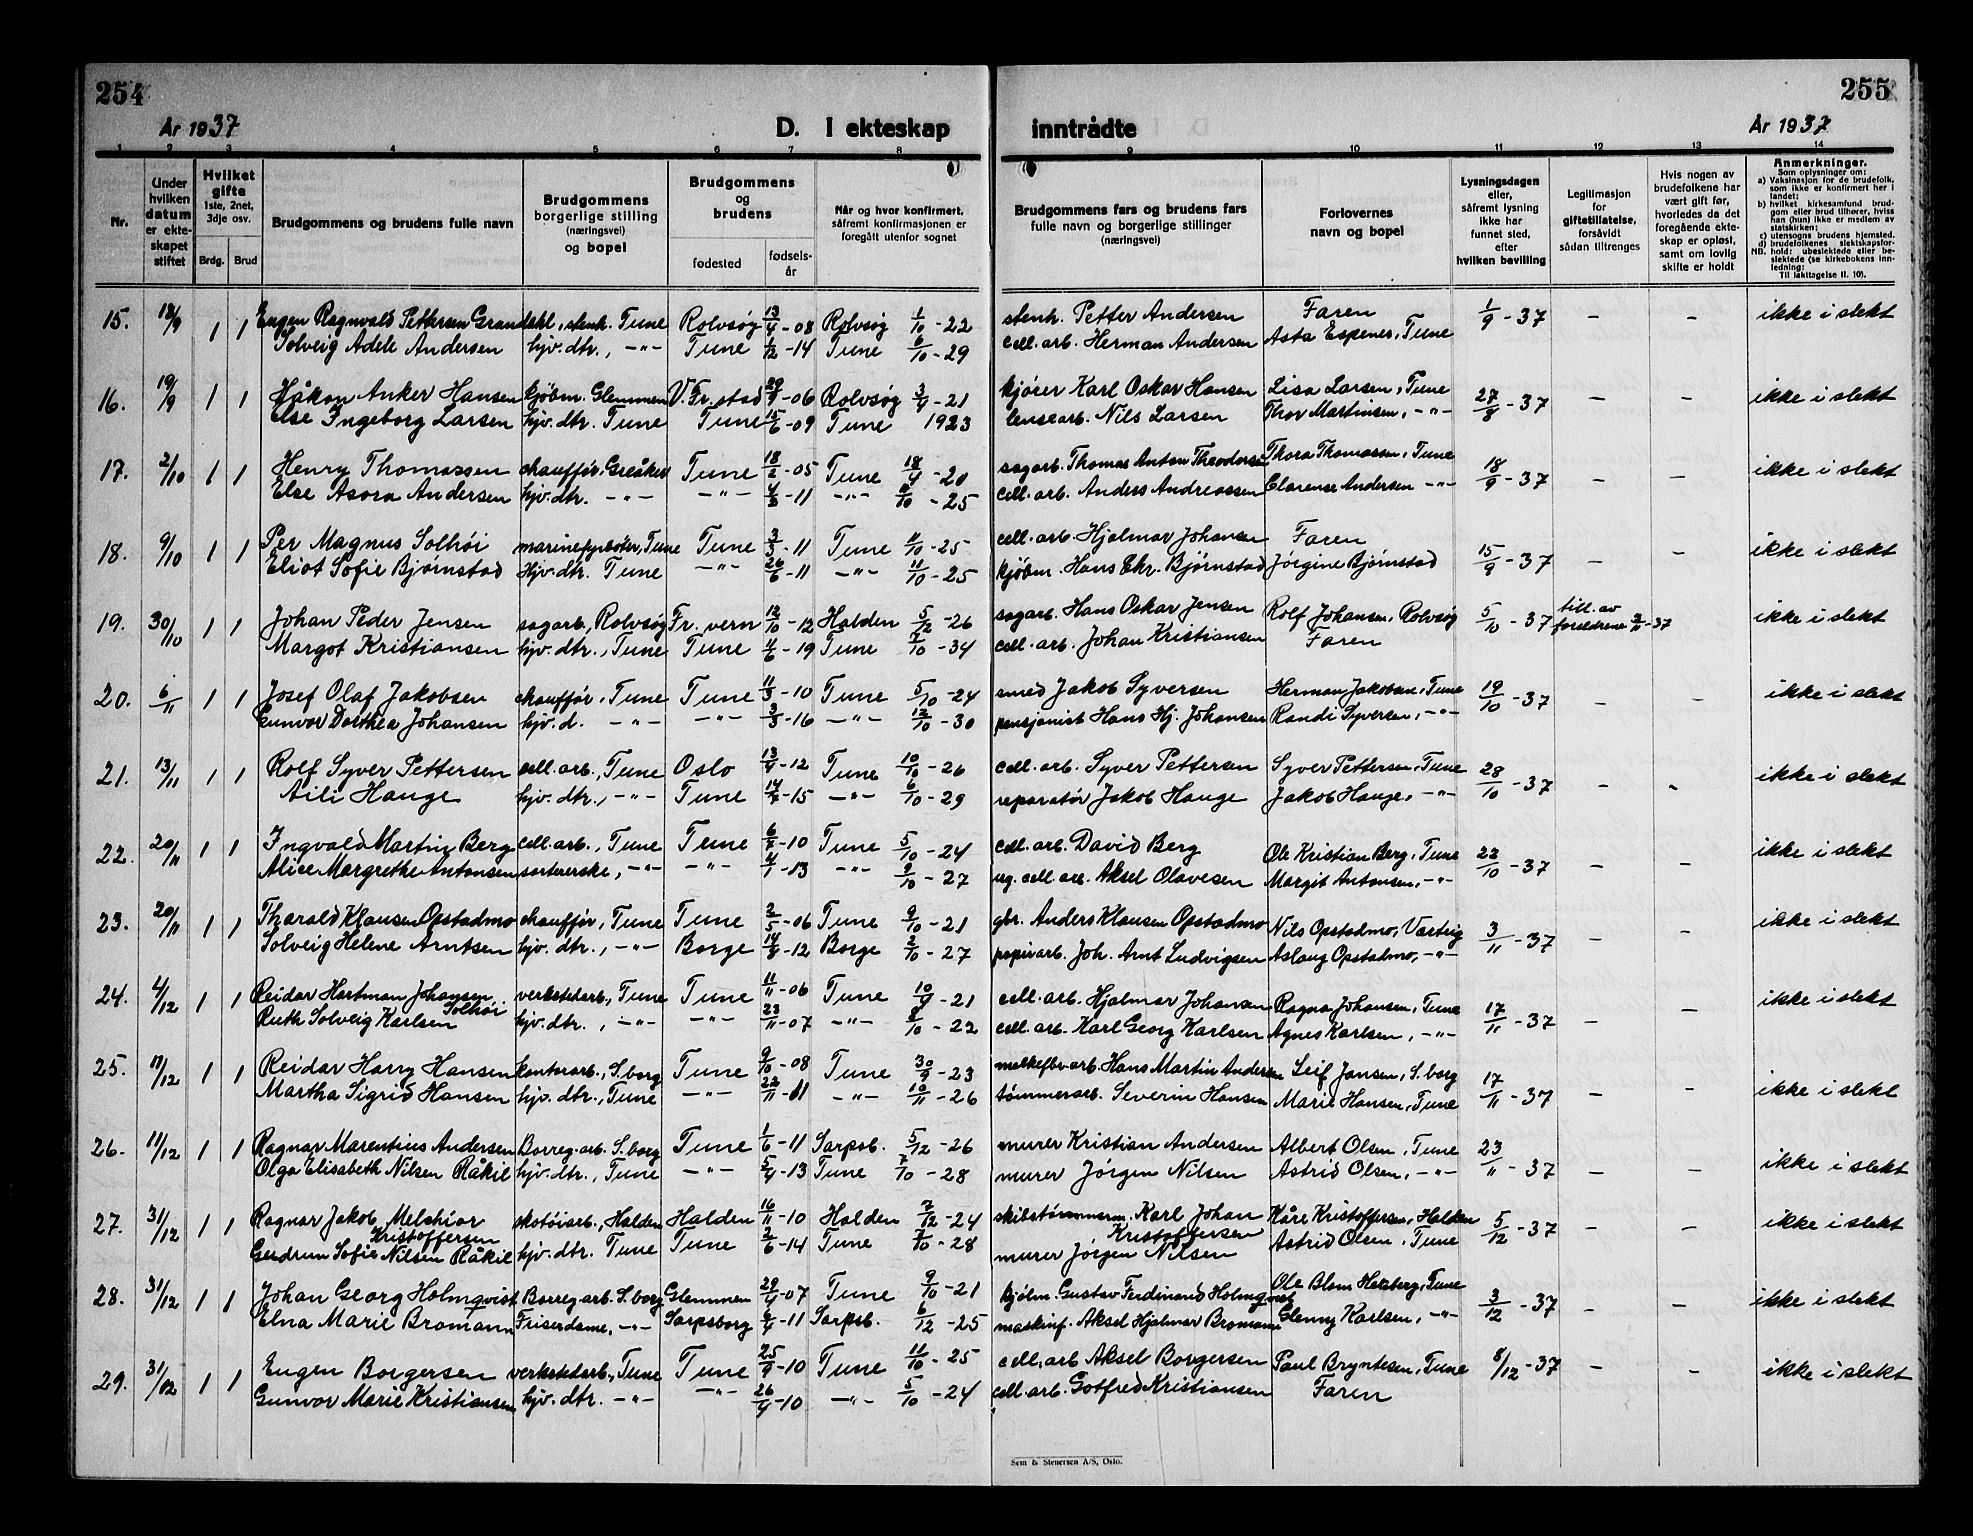 254
255
År 1937
D. I ekteskap
inntrådte
År 1937
1 2 3 4 5 6 7 8 9 10 11 12 13 14
Nr.
Under hvilken datum er ekteskapet stiftet
Hvilket gifte 1ste, 2net, 3dje osv.
Brdg. Brud
Brudgommens og brudens fulle navn
Brudgommens borgerlige stilling (næringsvei) og bopel
Brudgommens og brudens
fødested
fødselsår
Når og hvor konfirmert, såfremt konfirmasjonen er foregått utenfor sognet
Brudgommens fars og brudens fars fulle navn og borgerlige stillinger (næringsvei)
Forlovernes navn og bopel
Lysningsdagen eller, såfremt lysning ikke har funnet sted, efter hvilken bevilling
Legitimasjon for giftetillatelse, forsåvidt sådan tiltrenges
Hvis nogen av brudefolkene har vært gift før, hvorledes da det foregående ekteskap er opløst, samt om lovlig skifte er holdt
Anmerkninger.
Som oplysninger om:
a) Vaksinasjon for de brudefolk, som ikke er konfirmert her i landet;
b) hvilket kirkesamfund brudgom eller brud tilhører, hviss han (hun) ikke er medlem av statskirken;
c) utensogns brudens hjemsted.
d) brudefolkenes slektskapsforhold: ubeslektede eller beslektede (se kirkebokens innledning:
NB. Til iakttagelse II. 10).
15. 18/9 1 1 Eugen Ragnvald Pettersen Grandahl, stenh. Tune Rolvsøy 13/4-08 Rolvsøy 1/10-22 stenh. Petter Andersen Faren 1/9-37 - - ikke i slekt
Solveig Adele Andersen hjv. dtr., -"- Tune 1/12-14 Tune 6/10-29 cell. arb. Herman Andersen Asta Espenes, Tune
16. 19/9 1 1 Håkon Anker Hansen kjøbm. Glemmen V. Fr.stad 29/9-06 Rolvsøy 3/4-21 kjører Karl Oskar Hansen Lisa Larsen, Tune 27/8-37 - - ikke i slekt
Else Ingeborg Larsen hjv. dtr. Tune Tune 15/6-09 Tune 1923 lensearb. Nils Larsen Thor Martinsen, -"-
17. 2/10 1 1 Henry Thomassen chauffør, Greåker Tune 18/2-05 Tune 18/4-20 sagarb. Thomas Anton Theodorsen Thora Thomassen, Tune 18/9-37 - - ikke i slekt
Else Asora Andersen hjv. dtr. -"- -"- 4/3-11 -"- 11/10-25 cell. arb. Anders Andreassen Clarense Andersen -"-
18. 9/10 1 1 Per Magnus Solhøi marinefyrbøter, Tune Tune 3/3-11 Tune 11/10-25 cell. arb. Hjalmar Johansen Faren 15/9-37 - - ikke i slekt
Eliot Sofie Bjørnstad Hjv. dtr. Tune -"- 26/6-11 -"- 11/10-25 kjøbm. Hans Chr. Bjørnstad Jørgine Bjørnstad
19. 30/10 1 1 Johan Peder Jensen sagarb., Rolvsøy Fr. vern 12/10-12 Halden 5/12-26 sagarb. Hans Oskar Jensen Rolf Johansen, Rolvsøy 5/10-37 till. av foreldrene -37 ikke i slekt
Margot Kristiansen hjv. dtr., Tune Tune 11/6-19 Tune 7/10-34 cell. arb. Johan Kristiansen Faren
20. 6/11 1 1 Josef Olaf Jakobsen chauffør, Tune Tune 11/3-10 Tune 5/10-24 smed Jakob Syversen Herman Jakobsen, Tune 19/10-37 - - ikke i slekt
Gunvor Dorthea Johansen hjv. d. -"- -"- 3/3-16 -"- 12/10-30 pensjonist Hans Hj. Johansen Randi Syversen, -"-
21. 13/11 1 1 Rolf Syver Pettersen cell. arb., Tune Oslo 13/9-12 Tune 10/10-26 cell. arb. Syver Pettersen Syver Pettersen, Tune 28/10-37 - - ikke i slekt
Aili Hauge hjv. dtr., -"- Tune 14/7-15 -"- 6/10-29 reparatør Jakob Hauge Jakob Hauge, -"-
22. 20/11 1 1 Ingvald Martin Berg cell. arb., Tune Tune 6/7-10 Tune 5/10-24 cell. arb. David Berg Ole Kristian Berg, Tune 22/10-37 - - ikke i slekt
Alice Margrethe Antonsen sorterérske, -"- -"- 4/1-13 -"- 9/10-27 cell. arb. Aksel Olavesen Margit Antonsen, -"-
23. 20/11 1 1 Tharald Klausen Opstadmo chauffør, Tune Tune 2/5-06 Tune 9/10-21 gbr. Anders Klausen Opstadmo Nils Opstadmo, Varteig 3/11-37 - - ikke i slekt
Solveig Helene Arntsen hjv. dtr., -"- Borge 14/8-12 Borge 2/10-27 papirarb. Joh. Arnt Ludvigsen Aslaug Opstadmo, -"-
24. 4/12 1 1 Reidar Hartman Johansen Solhøi verkstedarb., Tune Tune 11/11-06 Tune 10/9-21 cell. arb. Hjalmar Johansen Ragna Johansen, Tune 17/11-37 - - ikke i slekt
Ruth Solveig Karlsen hjv. dtr., -"- -"- 23/11-07 -"- 8/10-22 cell. arb. Karl Georg Karlsen Agnes Karlsen, -"-
25. 11/12 1 1 Reidar Harry Hansen kontorarb., S.borg Tune 9/10-08 Tune 30/9-23 melkefbr.arb. Hans Martin Andersen Leif Jansen, S.borg 17/11-37 - - ikke i slekt
Martha Sigrid Hansen hjv. dtr., Tune -"- 22/11-01 -"- 10/11-26 tømmerarb. Severin Hansen Marie Hansen, Tune
26. 11/12 1 1 Ragnar Marentius Andersen Borreg.arb. S.borg Tune 1/6-11 Sarpsb. 5/12-26 murer Kristian Andersen Albert Olsen, Tune 23/11-37 - - ikke i slekt
Olga Elisabeth Nilsen Råkil hjv. dtr., Tune -"- 5/4-13 Tune 7/10-28 murer Jørgen Nilsen Astrid Olsen, -"-
27. 31/12 1 1 Ragnar Jakob Melchior Kristoffersen skotøiarb., Halden Halden 16/11-10 Halden 7/12-24 skibstømmerm. Karl Johan Kristoffersen Kåre Kristoffersen, Halden 5/12-37 - - ikke i slekt
Gerdrun Sofie Nilsen Råkil hjv. dtr. Tune Tune 2/6-14 Tune 7/10-28 murer Jørgen Nilsen Astrid Olsen, Tune
28. 31/12 1 1 Johan Georg Holmqvist Borreg.arb. S.borg Glemmen 29/4-07 Tune 9/10-21 kjølm. Gustav Ferdinand Holmqvist Ole Blom Herberg, Tune 3/12-37 - - ikke i slekt
Elna Marie Bromann Friserdame, -"- Sarpsborg 8/4-11 Sarpsb. 6/12-25 maskinf. Aksel Hjalmar Bromann Glenny Karlsen, -"-
29. 31/12 1 1 Eugen Borgersen verkstedarb., Tune Tune 25/9-10 Tune 11/10-25 cell. arb. Aksel Borgersen Paul Bryntesen, Tune 8/12-37 - - ikke i slekt
Gunvor Marie Kristiansen hjv. dtr. -"- -"- 26/4-10 -"- 5/10-24 cell. arb. Gotfred Kristiansen Faren
Sem & Stenersen A/S, Oslo.